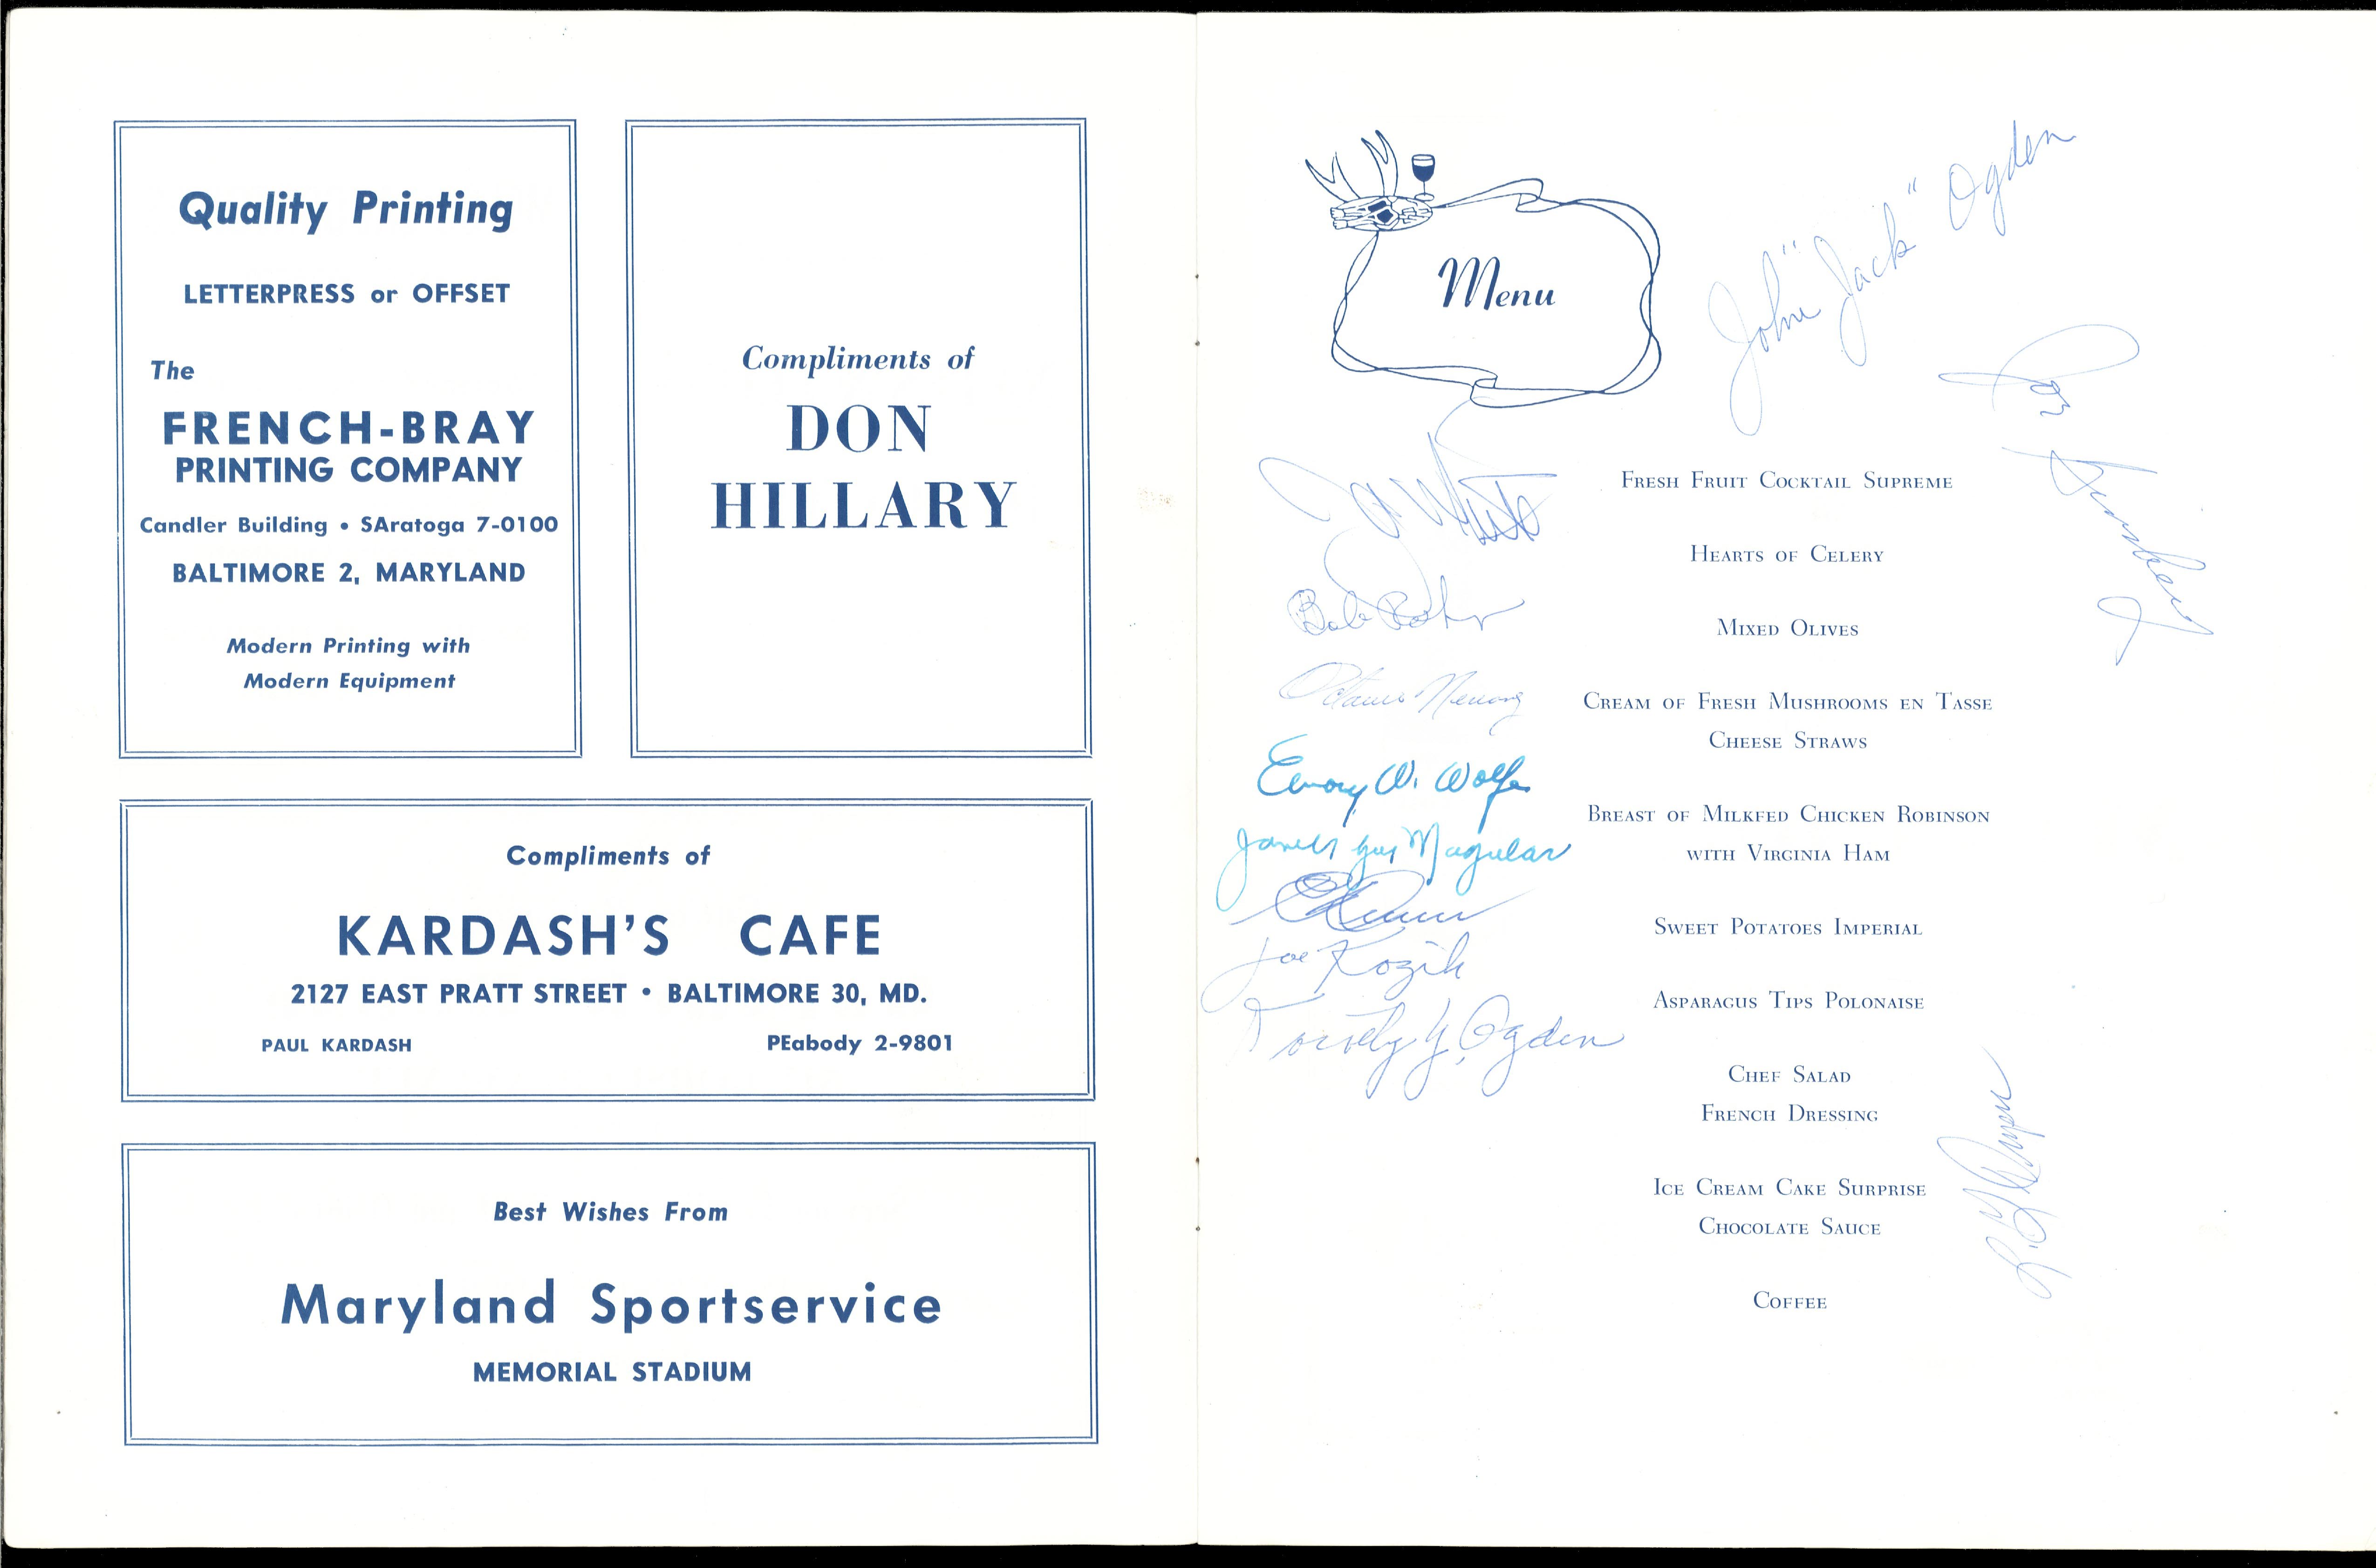 Quality Printing
LETTERPRESS or OFFSET
The
FRENCH-BRAY
PRINTING COMPANY
Candler Building • SAratoga 7-0100
BALTIMORE 2, MARYLAND
Modern Printing with
Modern Equipment
Compliments of
DON
HILLARY
Compliments of
KARDASH'S CAFE
2127 EAST PRATT STREET • BALTIMORE 30, MD.
PAUL KARDASH PEabody 2-9801
Best Wishes From
Maryland Sportservice
MEMORIAL STADIUM
Menu
John "Jack" Ogden
Fresh Fruit Cocktail Supreme
Hearts of Celery
Mixed Olives
Cream of Fresh Mushrooms en Tasse
Cheese Straws
Breast of Milkfed Chicken Robinson
with Virginia Ham
Sweet Potatoes Imperial
Asparagus Tips Polonaise
Chef Salad
French Dressing
Ice Cream Cake Surprise
Chocolate Sauce
Coffee
Bob
Emory W. Wolfe
Joe Kozik
Ogden